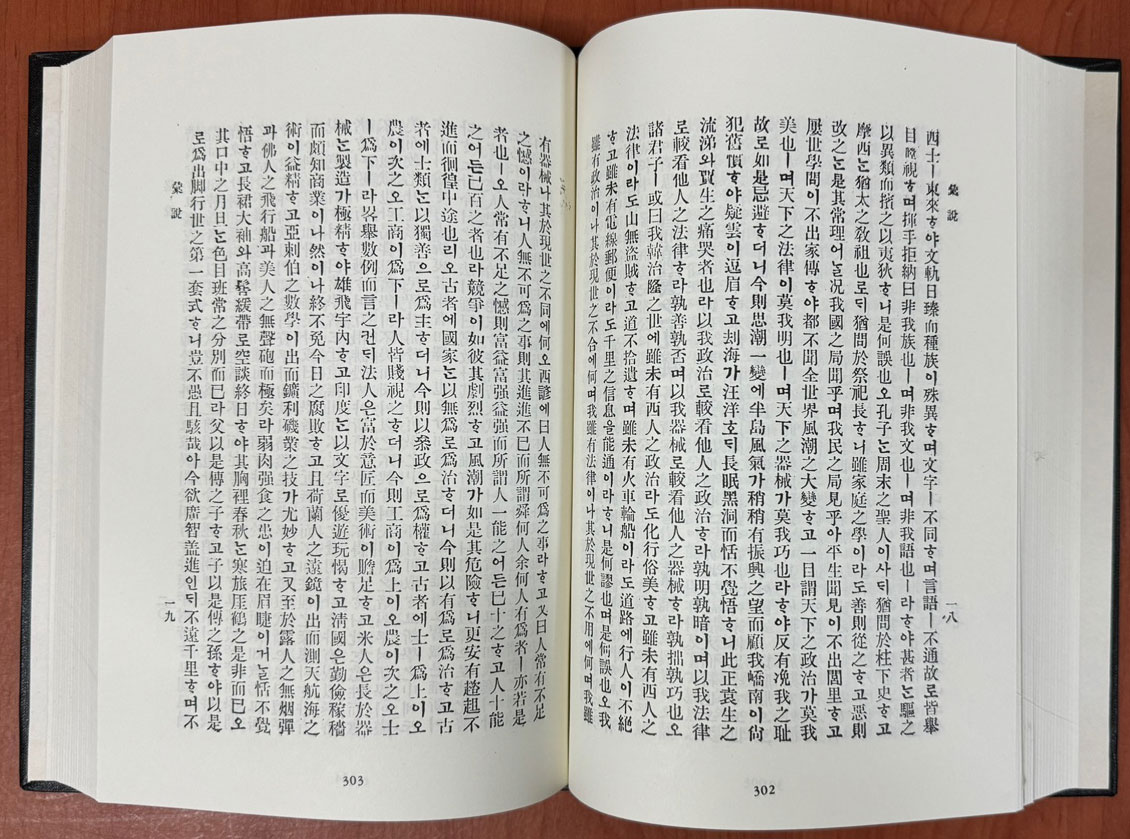 彙說
一八
西士ㅣ東來ᄒᆞ야文軌日臻而種族이殊異ᄒᆞ며文字ㅣ不同ᄒᆞ며言語ㅣ不通故로皆擧
目瞠視ᄒᆞ며揮手拒納曰非我族也ㅣ며非我文也ㅣ며非我語也ㅣ라ᄒᆞ야甚者ᄂᆞᆫ驅之
以異類而擯之以夷狄ᄒᆞ니是何誤也오孔子ᄂᆞᆫ周末之聖人이사ᄃᆡ猶問於柱下史ᄒᆞ고
摩西ᄂᆞᆫ猶太之敎祖也로ᄃᆡ猶問於祭祀長ᄒᆞ니雖家庭之學이라도善則從之ᄒᆞ고惡則
改之ᄂᆞᆫ是其常理어ᄂᆞᆯ况我國之局聞乎며我民之局見乎아平生聞見이不出閭里ᄒᆞ고
屢世學問이不出家傳ᄒᆞ야都不聞全世界風潮之大變ᄒᆞ고一目謂天下之政治가莫我
美也ㅣ며天下之法律이莫我明也ㅣ며天下之器械가莫我巧也라ᄒᆞ야反有浼我之耻
故로如是忌避ᄒᆞ더니今則思潮一變에半島風氣가稍稍有振興之望而顧我嶠南이尙
犯舊慣ᄒᆞ야疑雲이逗眉ᄒᆞ고刦海가汪洋호ᄃᆡ長眠黑洞而恬不覺悟ᄒᆞ니此正袁生之
流涕와賈生之痛哭者也라以我政治로較看他人之政治ᄒᆞ라孰明孰暗이며以我法律
로較看他人之法律ᄒᆞ라孰善孰否며以我器械로較看他人之器械ᄒᆞ라孰拙孰巧也오
諸君子ㅣ或曰我韓治隆之世에雖未有西人之政治라도化行俗美ᄒᆞ고雖未有西人之
法律이라도山無盜賊ᄒᆞ고道不拾遺ᄒᆞ며雖未有火車輪船이라도道路에行人이不絶
ᄒᆞ고雖未有電線郵便이라도千里之信息을能通이라ᄒᆞ니是何謬也며是何誤也오我
雖有政治이나其於現世之不合에何며我雖有法律이나其於現世之不用에何며我雖
302
有器械나其於現世之不同에何오西諺에曰人無不可爲之事라ᄒᆞ고又曰人常有不足
之憾이라ᄒᆞ니人無不可爲之事則其進進不已而所謂舜何人余何人有爲者ㅣ亦若是
者也ㅣ오人常有不足之憾則富益富强益强而所謂人一能之어든已十之ᄒᆞ고人十能
之어든已百之者也라競爭이如彼其劇烈ᄒᆞ고風潮가如是其危險ᄒᆞ니更安有趦趄不
進而徊徨中途也리오古者에國家ᄂᆞᆫ以無爲로爲治ᄒᆞ더니今則以有爲로爲治ᄒᆞ고古
者에士類ᄂᆞᆫ以獨善으로爲主ᄒᆞ더니今則以叅政으로爲權ᄒᆞ고古者에士ㅣ爲上이오
農이次之오工商이爲下ㅣ라人皆賤視之ᄒᆞ더니今則工商이爲上이오農이次之오士
ㅣ爲下ㅣ라畧擧數例而言之컨ᄃᆡ法人은富於意匠而美術이贍足ᄒᆞ고米人은長於器
械ᄂᆞᆫ製造가極精ᄒᆞ야雄飛宇內ᄒᆞ고印度ᄂᆞᆫ以文字로優遊玩愒ᄒᆞ고淸國은勤儉稼穡
而頗知商業이나然이나終不免今日之腐敗ᄒᆞ고且荷蘭人之遠鏡이出而測天航海之
術이益精ᄒᆞ고亞剌伯之數學이出而鑛利礮業之技가尤妙ᄒᆞ고又至於露人之無烟彈
과佛人之飛行船과美人之無聲砲而極矣라弱肉强食之患이迫在眉睫이거ᄂᆞᆯ恬不覺
悟ᄒᆞ고長裙大袖와高髻緩帶로空談終日ᄒᆞ야其胸裡春秋ᄂᆞᆫ寒旅厓鶴之是非而已오
其口中之月日ᄂᆞᆫ色目班常之分別而已라父以是傳之子ᄒᆞ고子以是傳之孫ᄒᆞ야以是
로爲出脚行世之第一套式ᄒᆞ니豈不愚且駭哉아今欲廣智盖進인ᄃᆡ不遠千里ᄒᆞ며不
彙說
一九
303